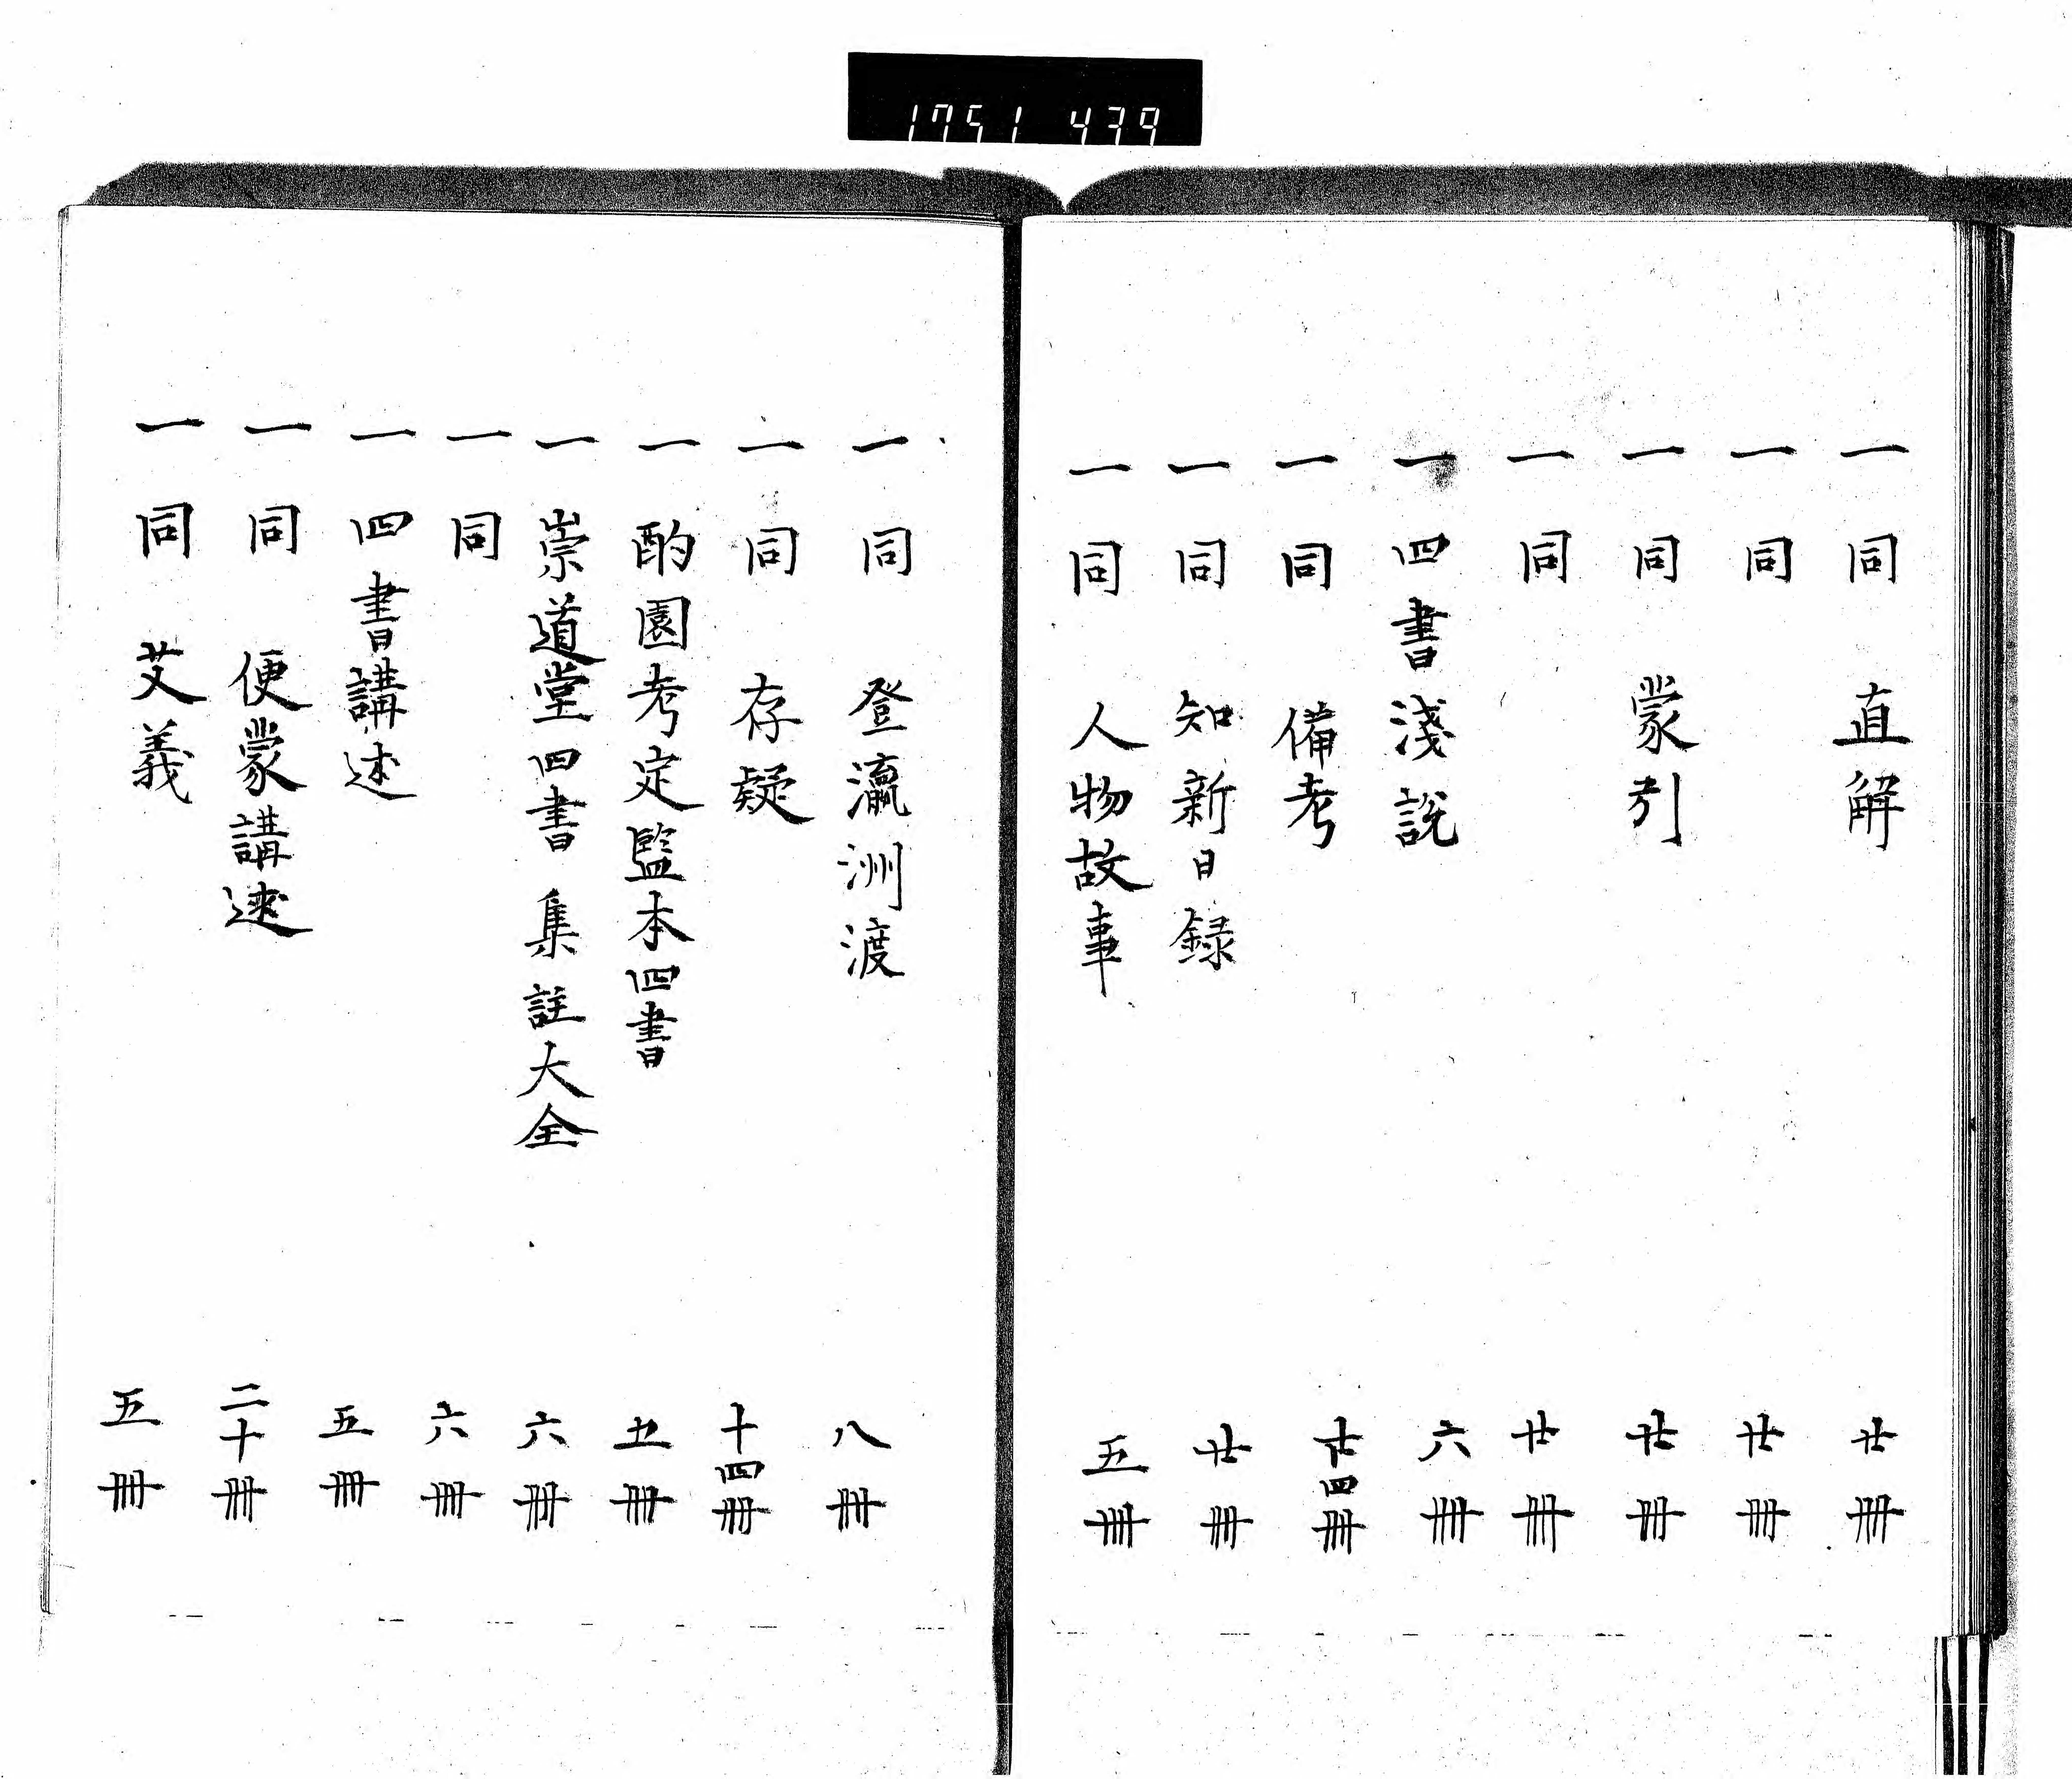 1751 439
一同 直解 廿冊
一同 廿冊
一同 蒙引 廿冊
一同 廿冊
一四書淺說 六冊
一同 備考 廿四冊
一同 知新日録 廿冊
一同 人物故事 五冊
一同 登瀛洲渡 八冊
一同 存疑 十四冊
一酌園考定監本四書 五冊
一崇道堂四書集註大全 六冊
一同 六冊
一四書講述 五冊
一同 便蒙講述 二十冊
一同 艾義 五冊